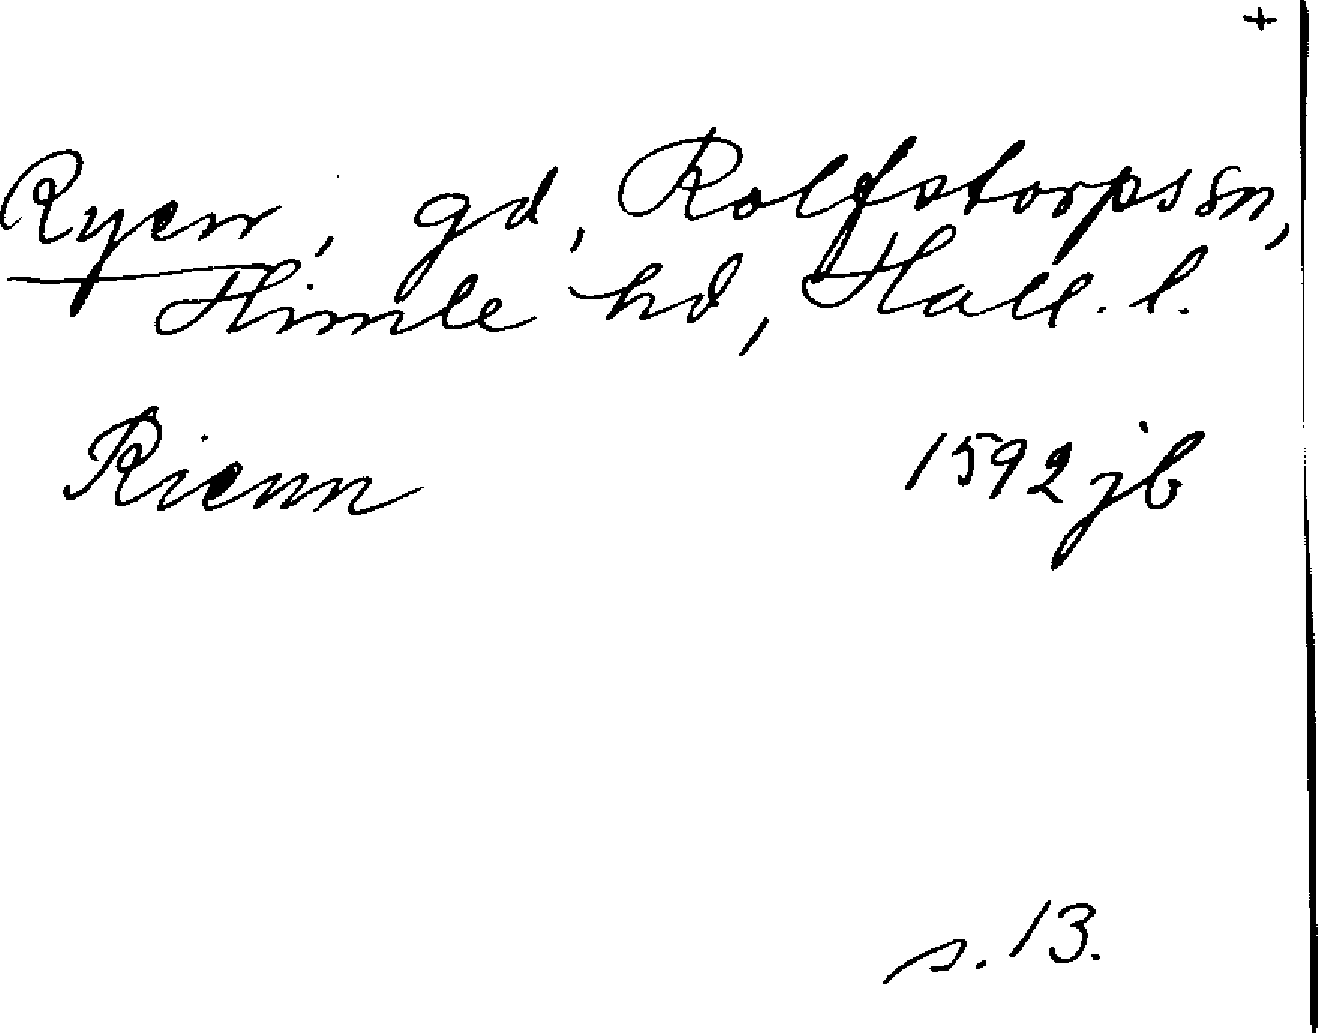 +
Ryen, gd, Rolfstorps sn,
Himle hd, Hall. l.
Rienn 1592 jb
s. 13.